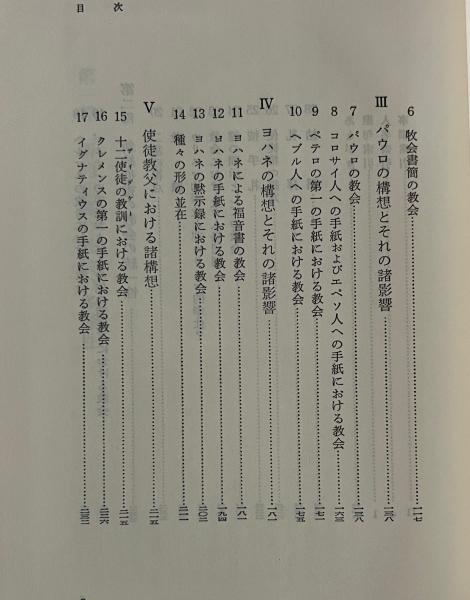 目次
6 牧会書簡の教会……一一七
Ⅲ パウロの構想とそれの諸影響……一三八
7 パウロの教会……一三八
8 コロサイ人への手紙およびエペソ人への手紙における教会……一六三
9 ペテロの第一の手紙における教会……一七一
10 ヘブル人への手紙における教会……一七五
Ⅳ ヨハネの構想とそれの諸影響……一八一
11 ヨハネによる福音書の教会……一八一
12 ヨハネの手紙における教会……一九四
13 ヨハネの黙示録における教会……二〇三
14 種々の形の並在……二一一
Ⅴ 使徒教父における諸構想……二一五
15 十二使徒の教訓における教会……二一五
16 クレメンスの第一の手紙における教会……二二六
17 イグナティウスの手紙における教会……二三二